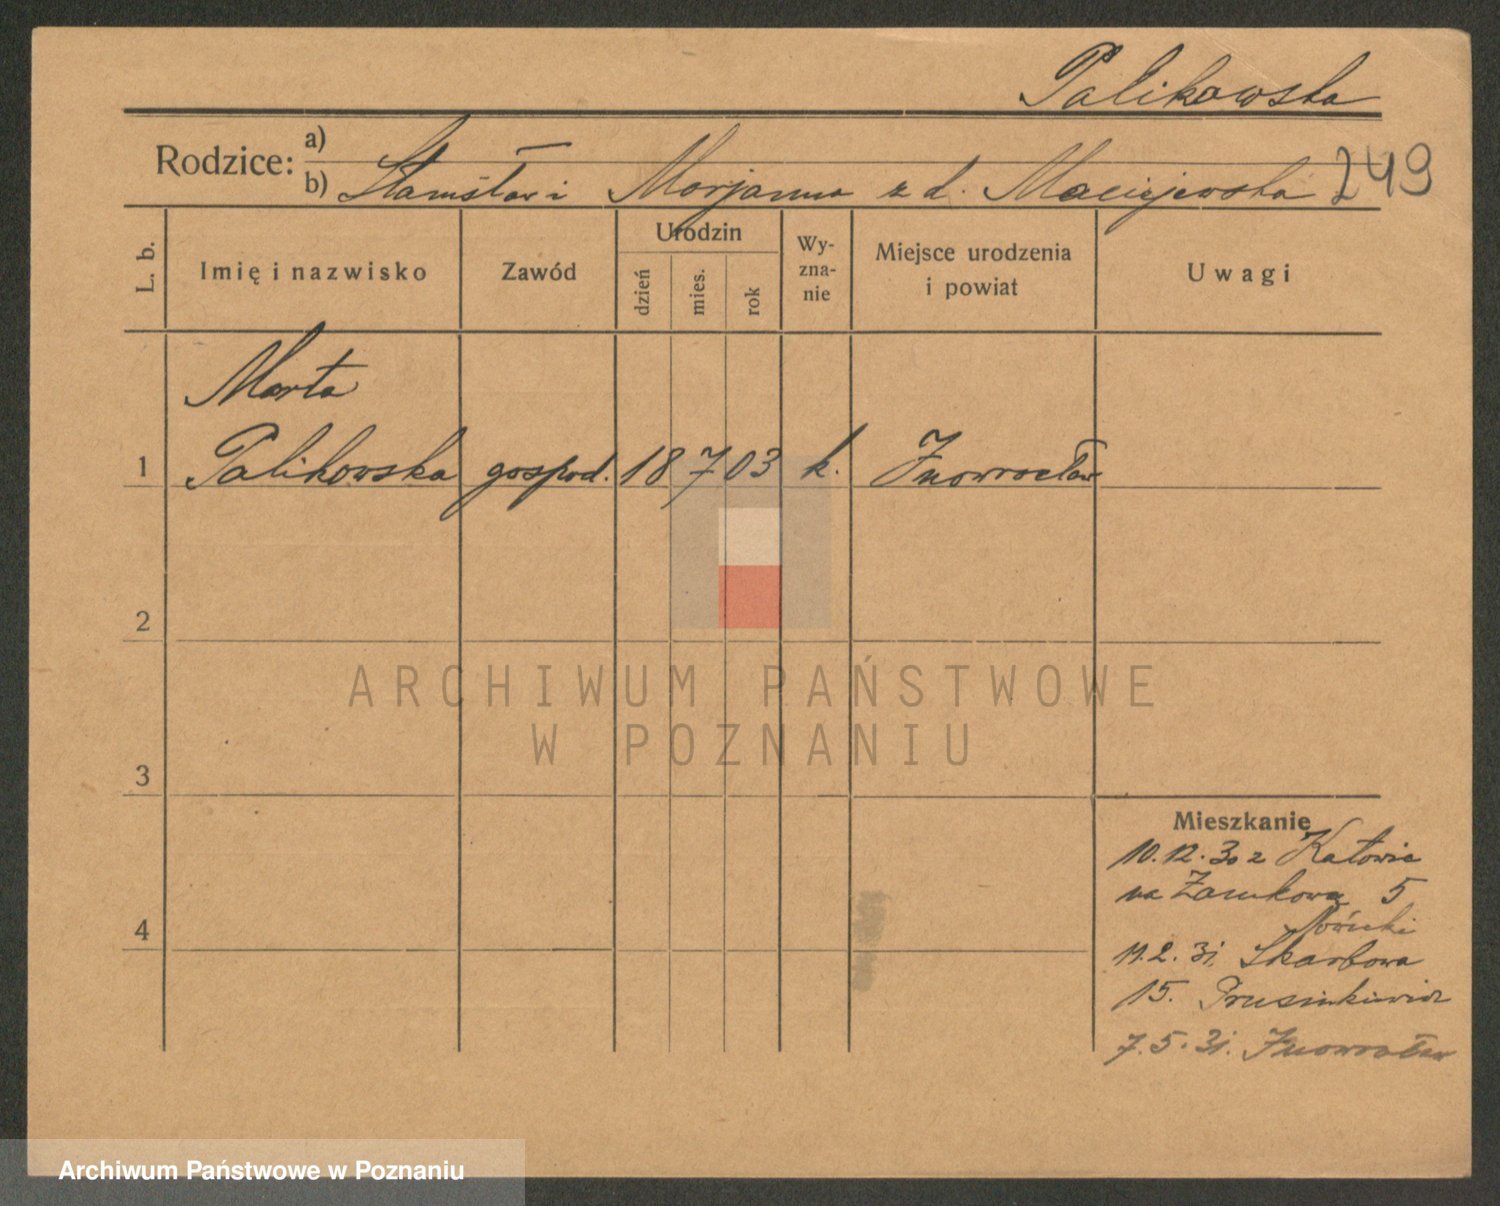 Palikowska
Rodzice: a)
b) Stanisław i Marjanna z d. Maciejewska 249
L. b. Imię i nazwisko Zawód Urodzin dzień mies. rok Wy-zna-nie Miejsce urodzenia i powiat Uwagi
Marta
1 Palikowska gospod. 18 7 03 k. Inowrocław
2
ARCHIWUM PAŃSTWOWE
W POZNANIU
3
Mieszkanie
10.12.30 z Katowic
na Zamkową 5
4
Nówicki
11.2.31 Skarbowa
15. Prusinkiewicz
7.5.31. Inowrocław
Archiwum Państwowe w Poznaniu